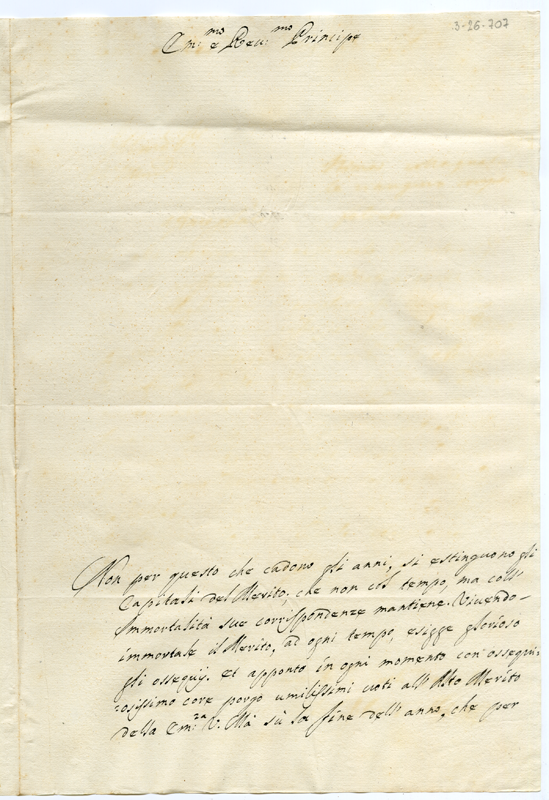 3-26-707
Em:mo e Reu:mo Principe
Non per questo che cadono gli anni, si estinguono gli
Capitali del Merito, che non col tempo, ma coll'
Immortalità sue corrispondenze mantiene. Viuendo-
immortale il Merito, ad ogni tempo, esigge glorioso
gli ossequij. et apponto in ogni momento con ossequi-
:osissimo core porgo umilissimi uoti all'Alto Merito
della Em:za V. Mà sù la fine dell'anno, che per